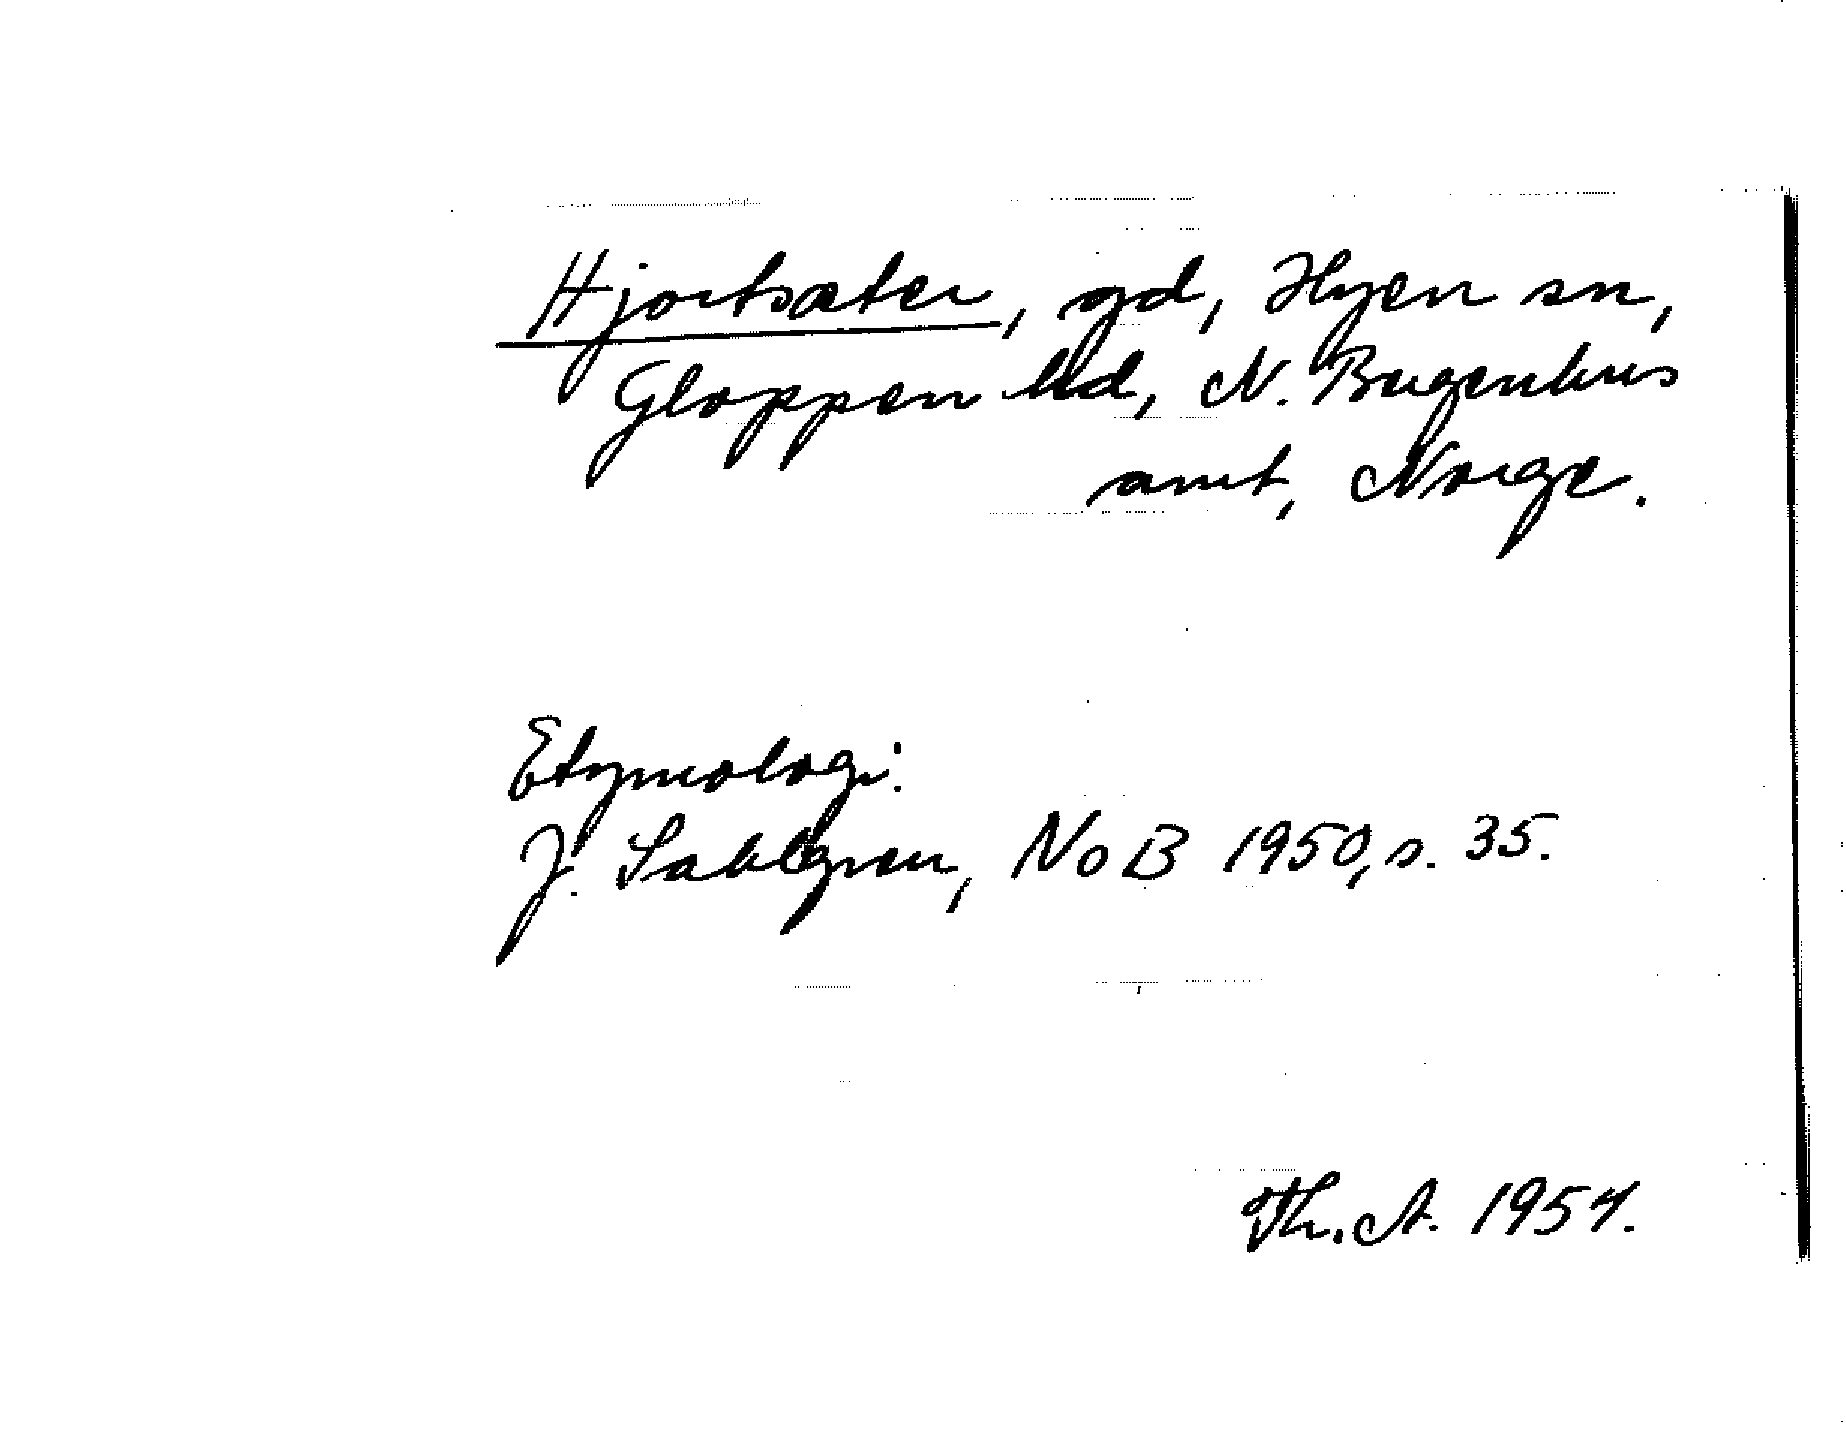 Hjortsæter, gd, Hyen sn,
Gloppen hd, N. Bergenhus
amt, Norge.
Etymologi:
J. Sahlgren, NoB 1950, s. 35.
Th. A. 1954.